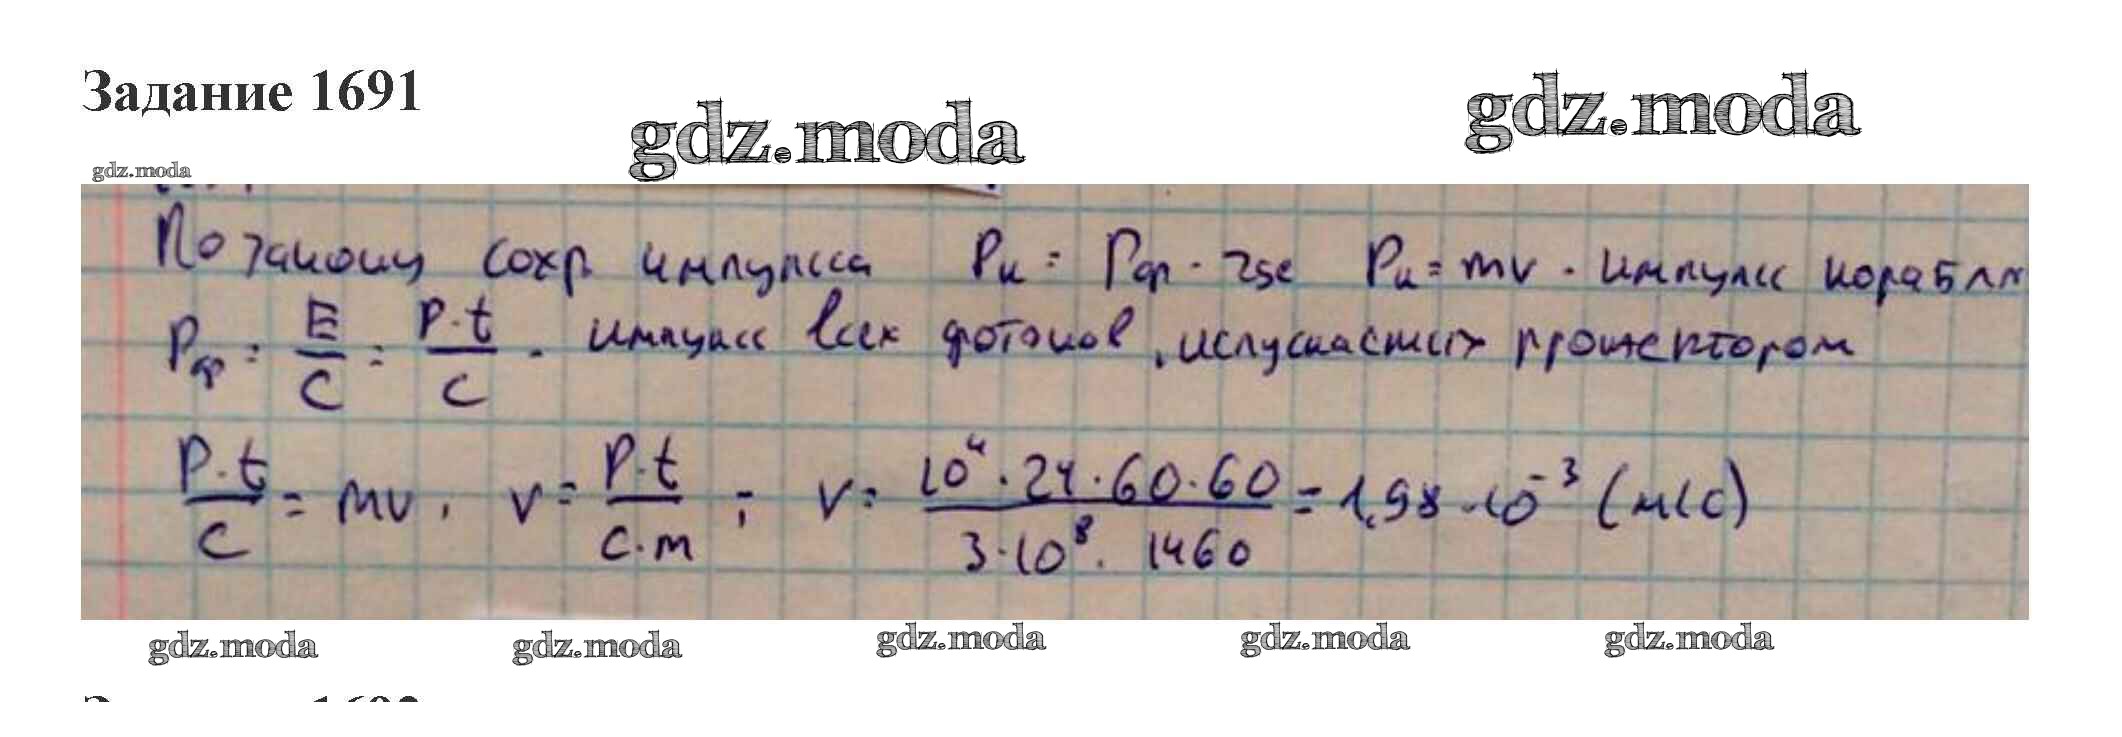 Задание 1691
gdz.moda
gdz.moda
gdz.moda
По закону сохр импульса Pк = Pф · где Pк = mv - импульс корабля
Pф = E/C = P·t/C - импульс всех фотонов, испускаемых прожектором
P·t/C = mv, v = P·t/C·m ; v = 10⁴·24·60·60/3·10⁸·1460 = 1,98·10⁻³ (м/с)
gdz.moda
gdz.moda
gdz.moda
gdz.moda
gdz.moda